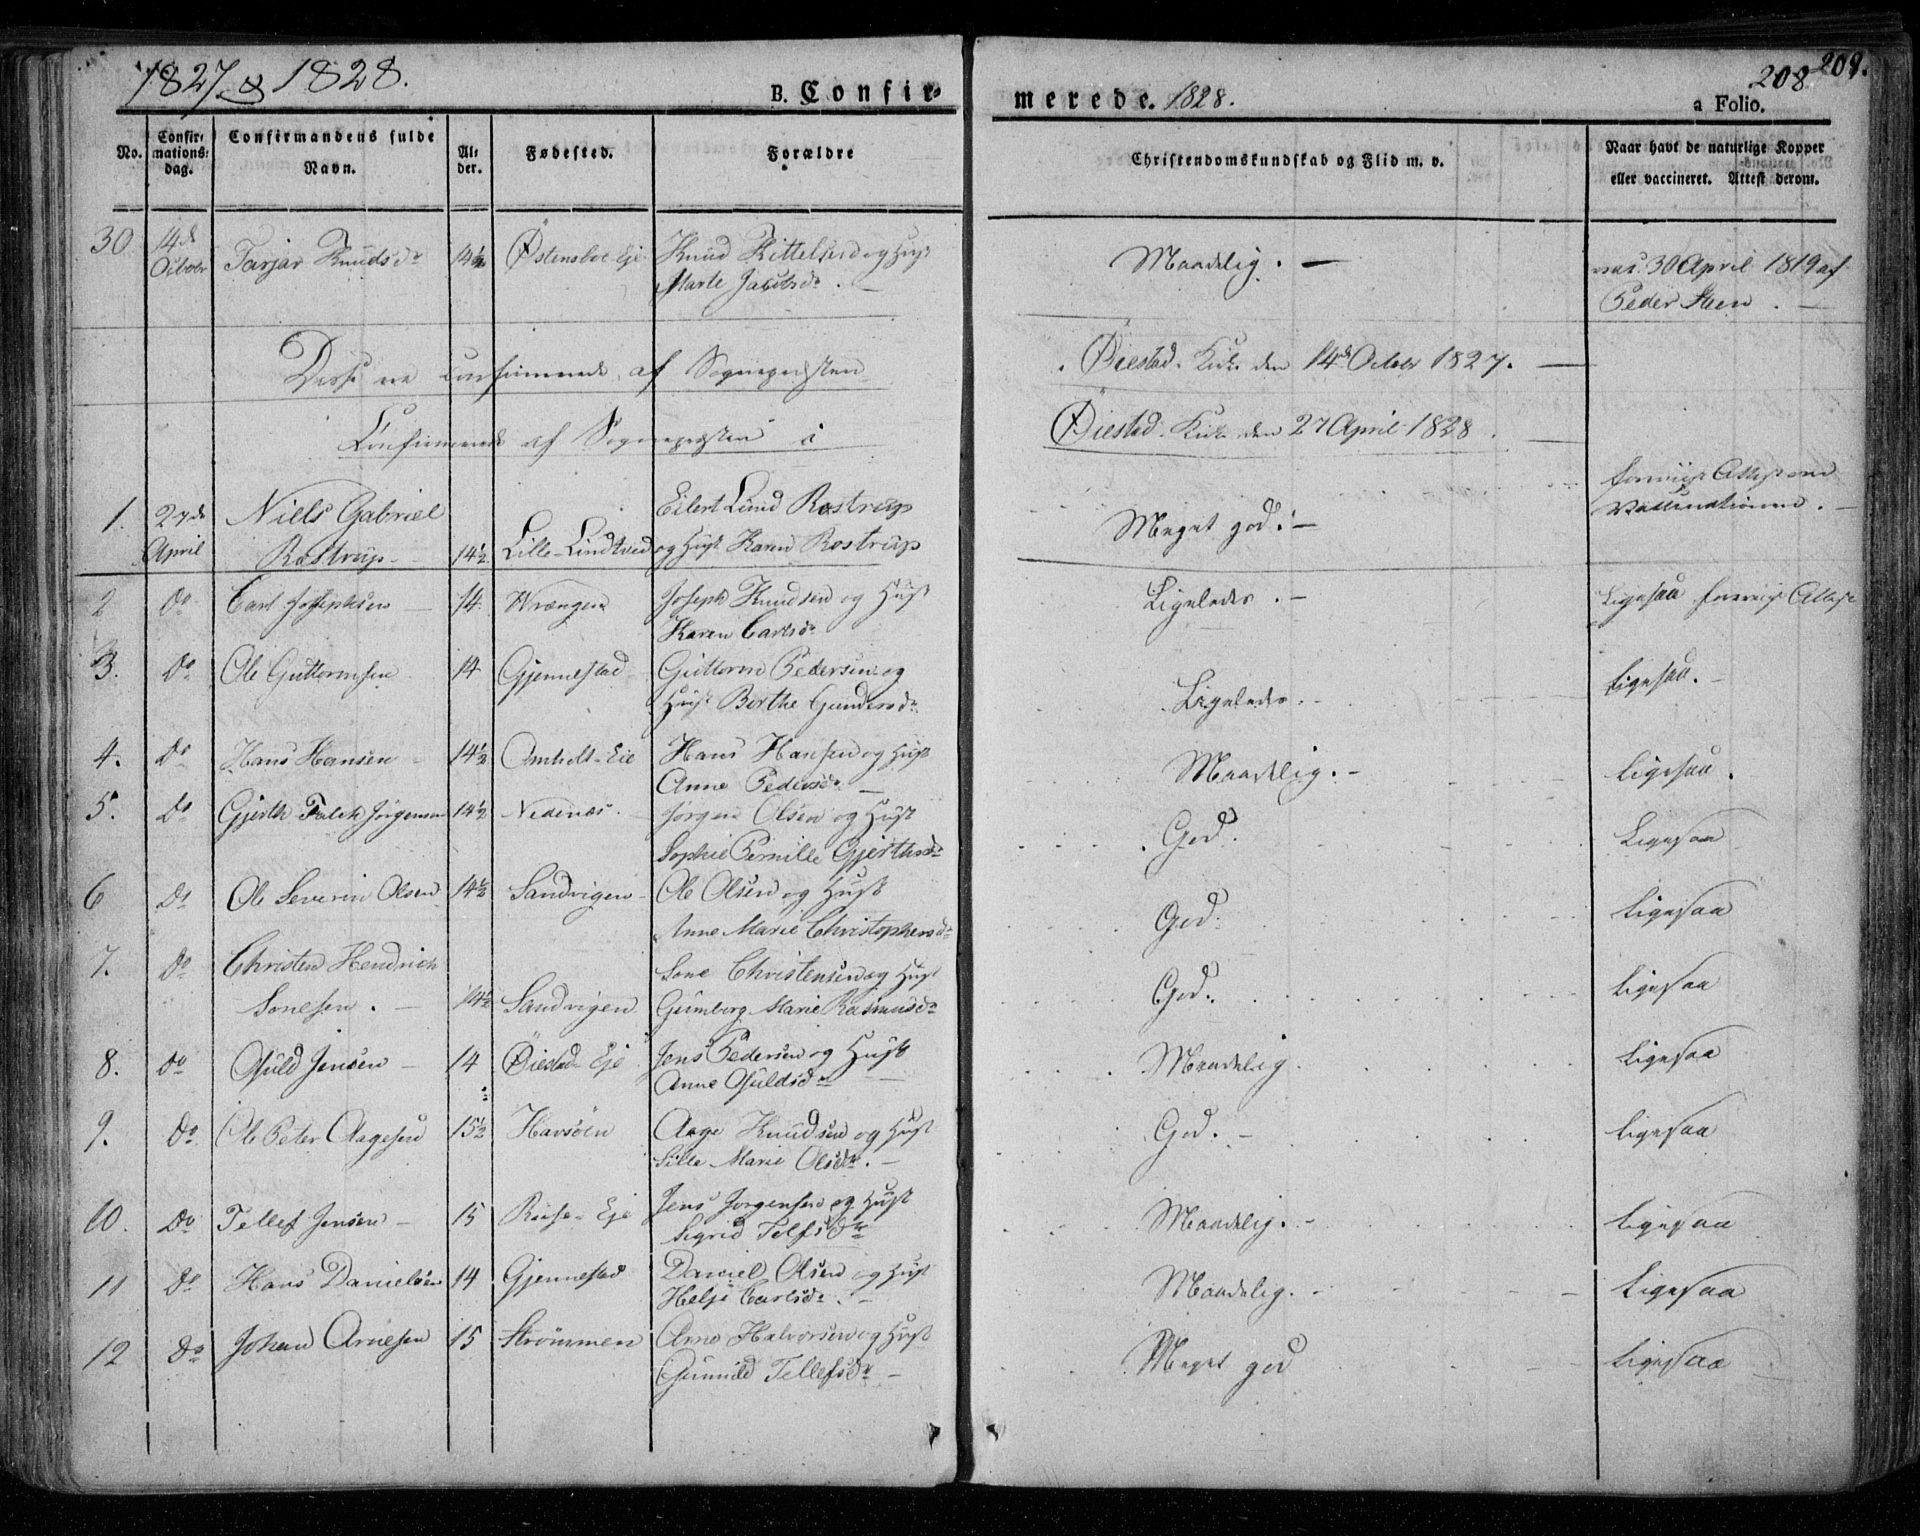 1827 & 1828.
B. Confir-
merede. 1828.
208 209.
a Folio.
No.
Confir-
mations-
dag.
Confirmandens fulde
Navn.
Al-
der.
Fødested.
Forældre
Christendomskundskab og Flid m. v.
Naar havt de naturlige Kopper
eller vaccineret. Attest derom.
30 14de Octobr Tarjar Knudsdr 14½ Østensboe Eje Knud Kittelsen og Hust
Marte Jacobsdr. —
Maadelig. —
vac. 30 April 1819 af
Peder Steen. —
Disse ere confirmerede af Sognepresten
Øiestad Kirke den 14de October 1827. —
Confirmerede af Sognepresten i
Øiestad Kirke den 27 April 1828.
1. 27de April Niels Gabriel
Rostrup 14½ Lille-Lindtved
Eilert Lund Rostrup
og Hust Karen Rostrup
Meget god. —
foreviist Attest om
Vaccinationen. —
2 Do Carl Josephsen 14 Wrængen Joseph Knudsen og Hust
Karen Carlsdr
Ligeledes. —
Ligesaa foreviist Attest
3. Do Ole Guttormsen 14 Gjennestad Guttorm Pedersen og
Hust Berthe Gundersdr
Ligeledes. —
Ligesaa. —
4. Do Hans Hansen 14½ Omholt-Eie Hans Hansen og Hust
Anne Pedersdr. —
Maadelig. —
Ligesaa.
5. Do Gjerth Falck Jørgensen 14½ Nedenæs. Jørgen Olsen og Hust
Sophie Pernille Gjerthsdr
God.
Ligesaa
6 Do Ole Severin Olsen 14½ Sandvigen Ole Olsen og Hust
Anne Marie Christophersdr
God.
Ligesaa
7. Do Christen Hendrich
Sonesen. — 14½ Sandvigen
Sone Christensen og Hust
Gunborg Marie Rasmusdr
God.
Ligesaa
8. Do Osuld Jensen — 14 Øiestad Eje Jens Pedersen og Hust
Anne Osuldsdr —
Maadelig.
Ligesaa
9. Do Ole Peter Aagesen 15½ Havsøen Aage Knudsen og Hust
Sille Marie Olsdr. —
God. —
Ligesaa
10. Do Tellef Jensen — 15 Riise-Eje Jens Jørgensen og Hust
Sigrid Telfsdr
Maadelig. —
Ligesaa
11 Do Hans Danielsen 14 Gjennestad Daniel Olsen og Hust
Helje Carlsdr. —
Maadelig. —
Ligesaa
12 Do Johan Arnesen 15 Strømmen Arne Halvorsen og Hust
Gunild Tellefsdr —
Meget god
Ligesaa